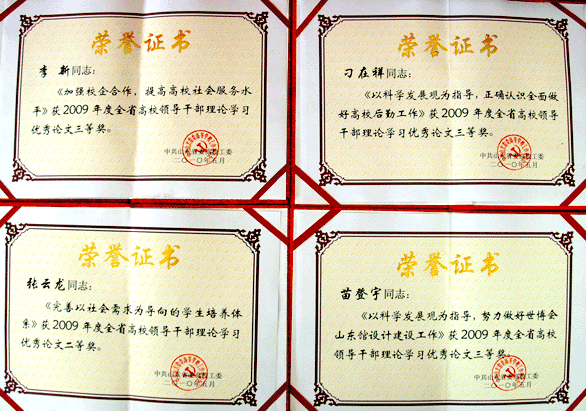 荣誉证书
李新同志：
《加强校企合作，提高高校社会服务水
平》获2009年度全省高校领导干部理论学习
优秀论文三等奖。
中共山东省 工委
二〇一〇年五月
荣誉证书
刁在祥同志：
《以科学发展观为指导，正确认识全面做
好高校后勤工作》获2009年度全省高校领导
干部理论学习优秀论文三等奖。
中共山东省 工委
二〇一〇年五月
荣誉证书
张云龙同志：
《完善以社会需求为导向的学生培养体
系》获2009年度全省高校领导干部理论学习
优秀论文二等奖。
中共山东省 工委
二〇一〇年五月
荣誉证书
苗登宇同志：
《以科学发展观为指导，努力做好世博会
山东馆设计建设工作》获2009年度全省高校
领导干部理论学习优秀论文三等奖。
中共山东省 工委
二〇一〇年五月